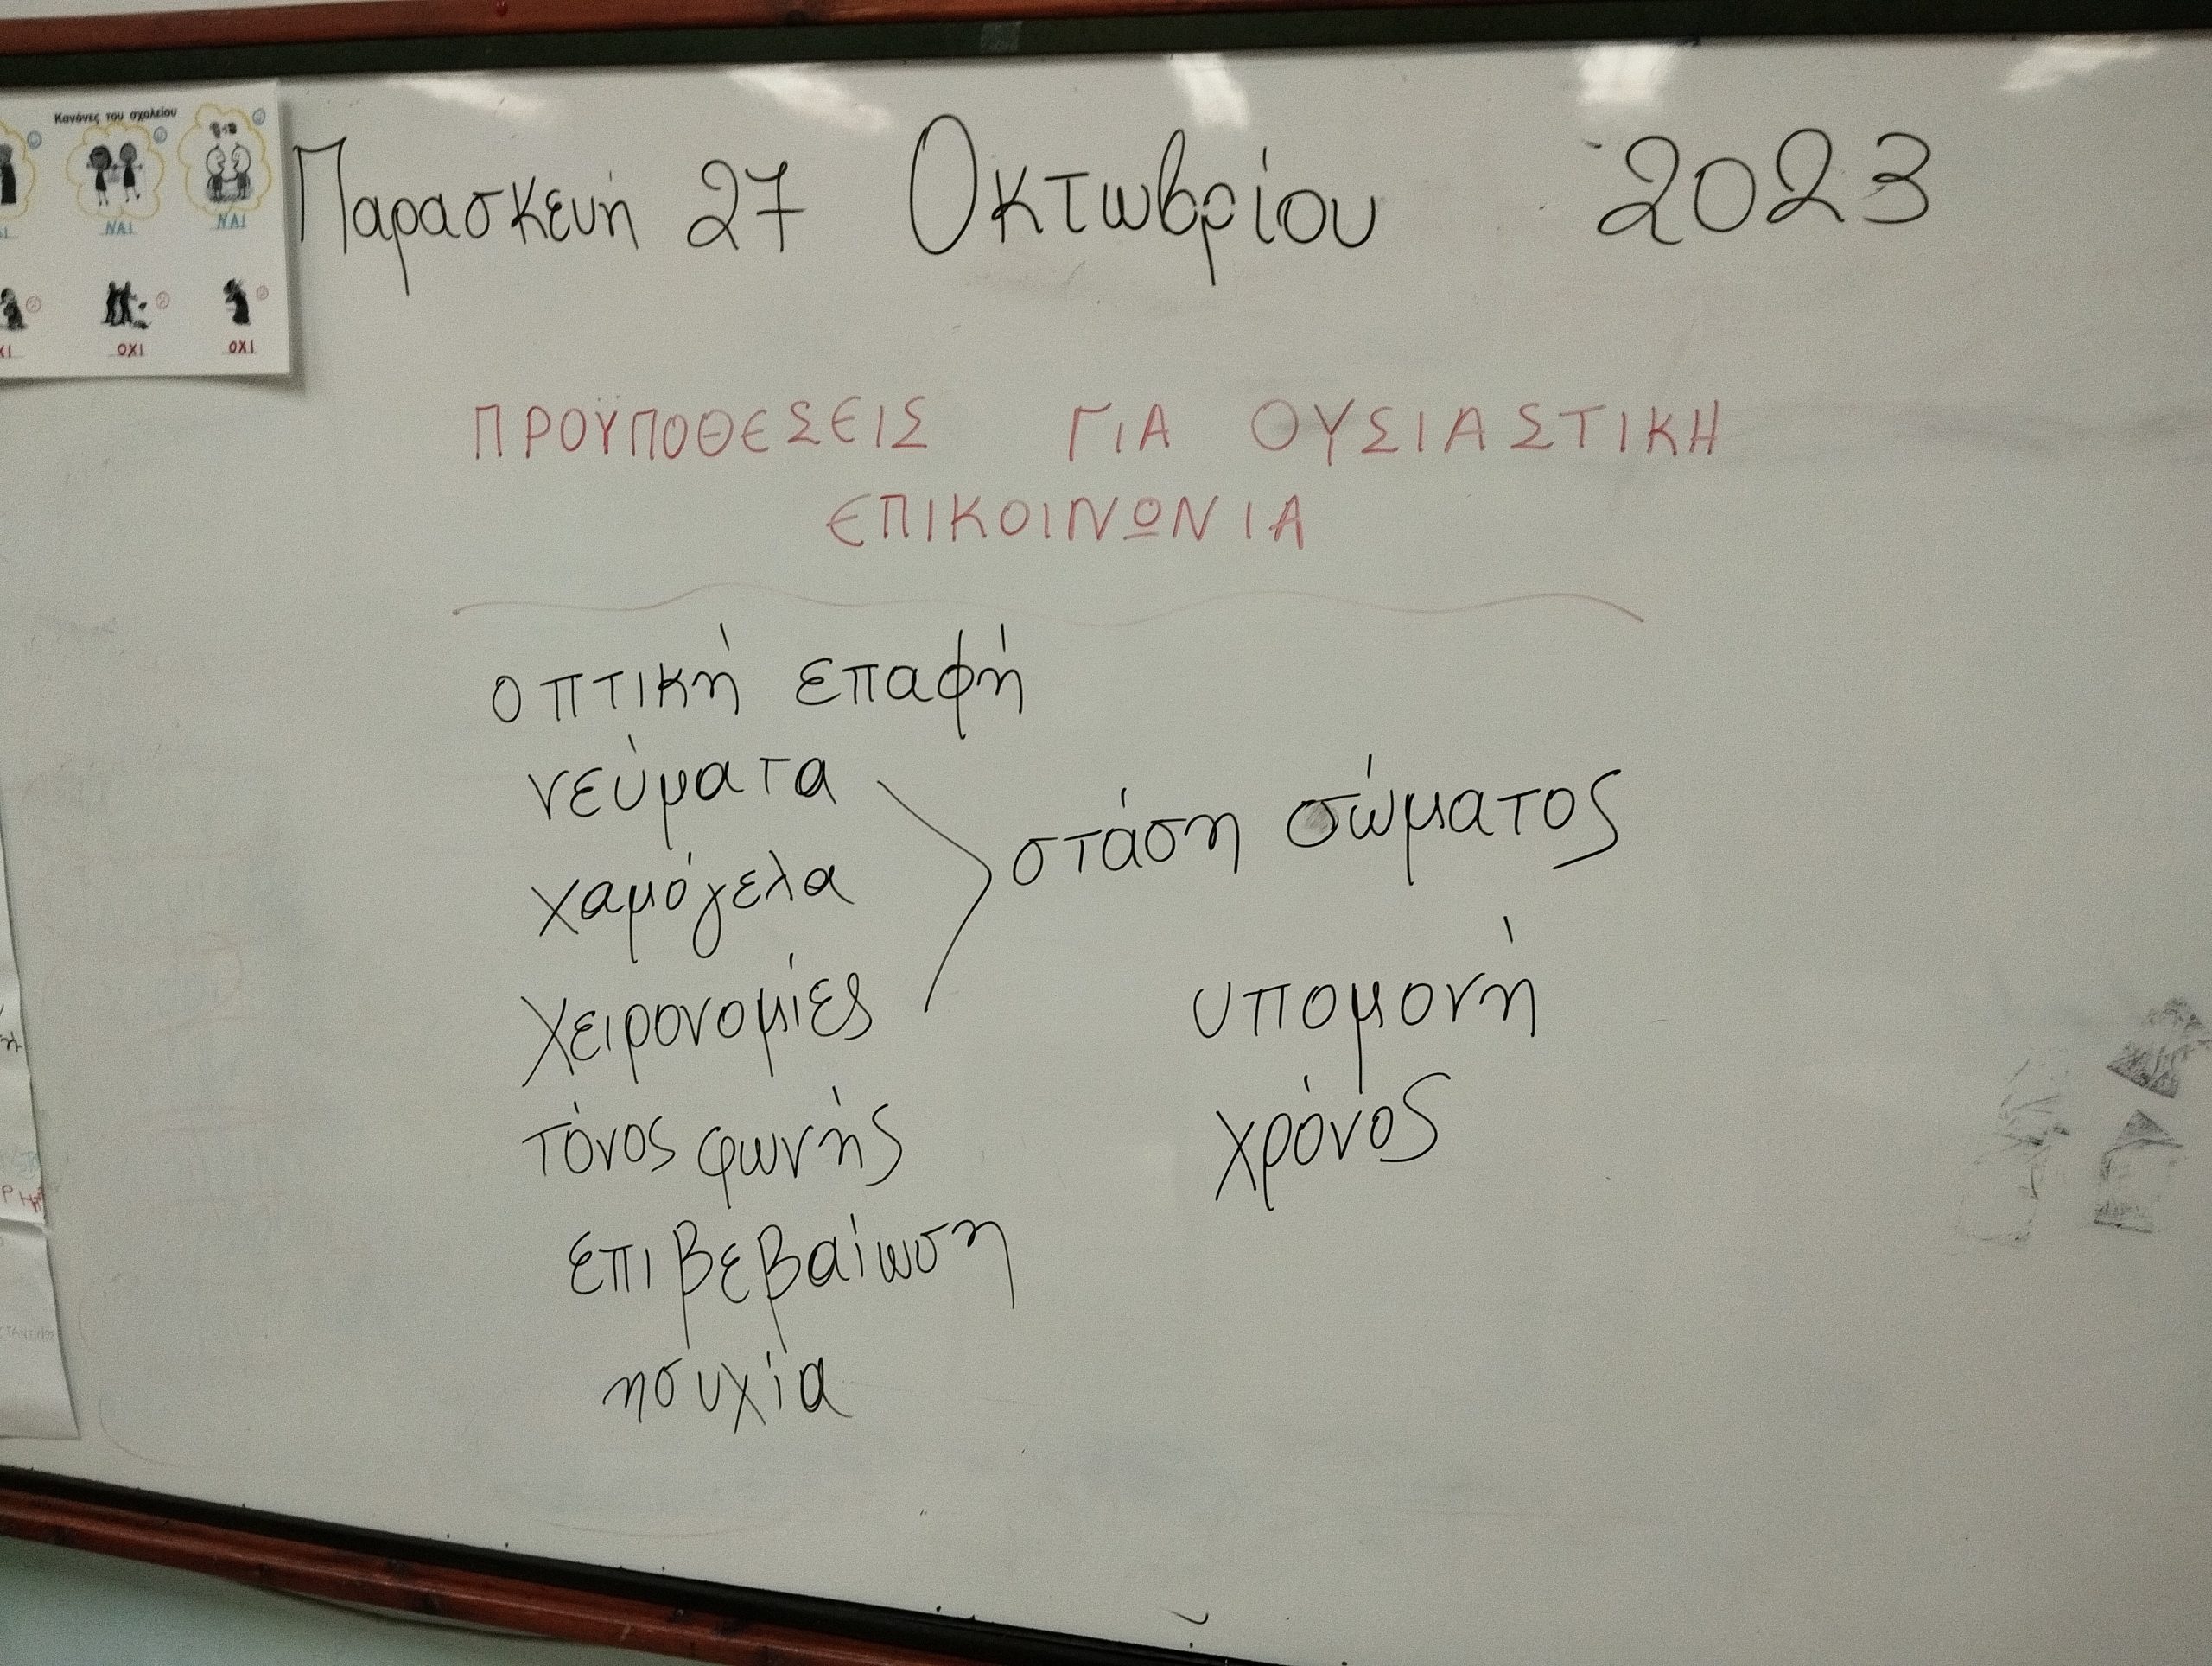 Κανόνες του σχολείου
ΝΑΙ ΝΑΙ
ΟΧΙ ΟΧΙ
Παρασκευή 27 Οκτωβρίου 2023
ΠΡΟΫΠΟΘΕΣΕΙΣ ΓΙΑ ΟΥΣΙΑΣΤΙΚΗ
ΕΠΙΚΟΙΝΩΝΙΑ
οπτική επαφή
νεύματα
χαμόγελα
χειρονομίες
τόνος φωνής
επιβεβαίωση
ησυχία
στάση σώματος
υπομονή
χρόνος